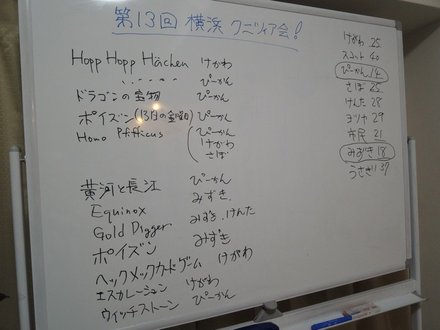 第13回 横浜 クニツィア会!
Hopp Hopp Häschen けがわ
〃 ぴーかん
ドラゴンの宝物 ぴーかん
ポイズン(13日の金曜日) ぴーかん
Homo Pfifficus ぴーかん
けがわ
さば
黄河と長江 ぴーかん
Equinox みずき
Gold Digger みずき、けんた
ポイズン みずき
ヘックメックカードゲーム けがわ
エスカレーション けがわ
ウィッチストーン ぴーかん
けがわ 25
スコット 40
ぴーかん 14
さば 25
けんた 28
ヨツヤ 29
市民 21
みずき 18
うさぎ 37